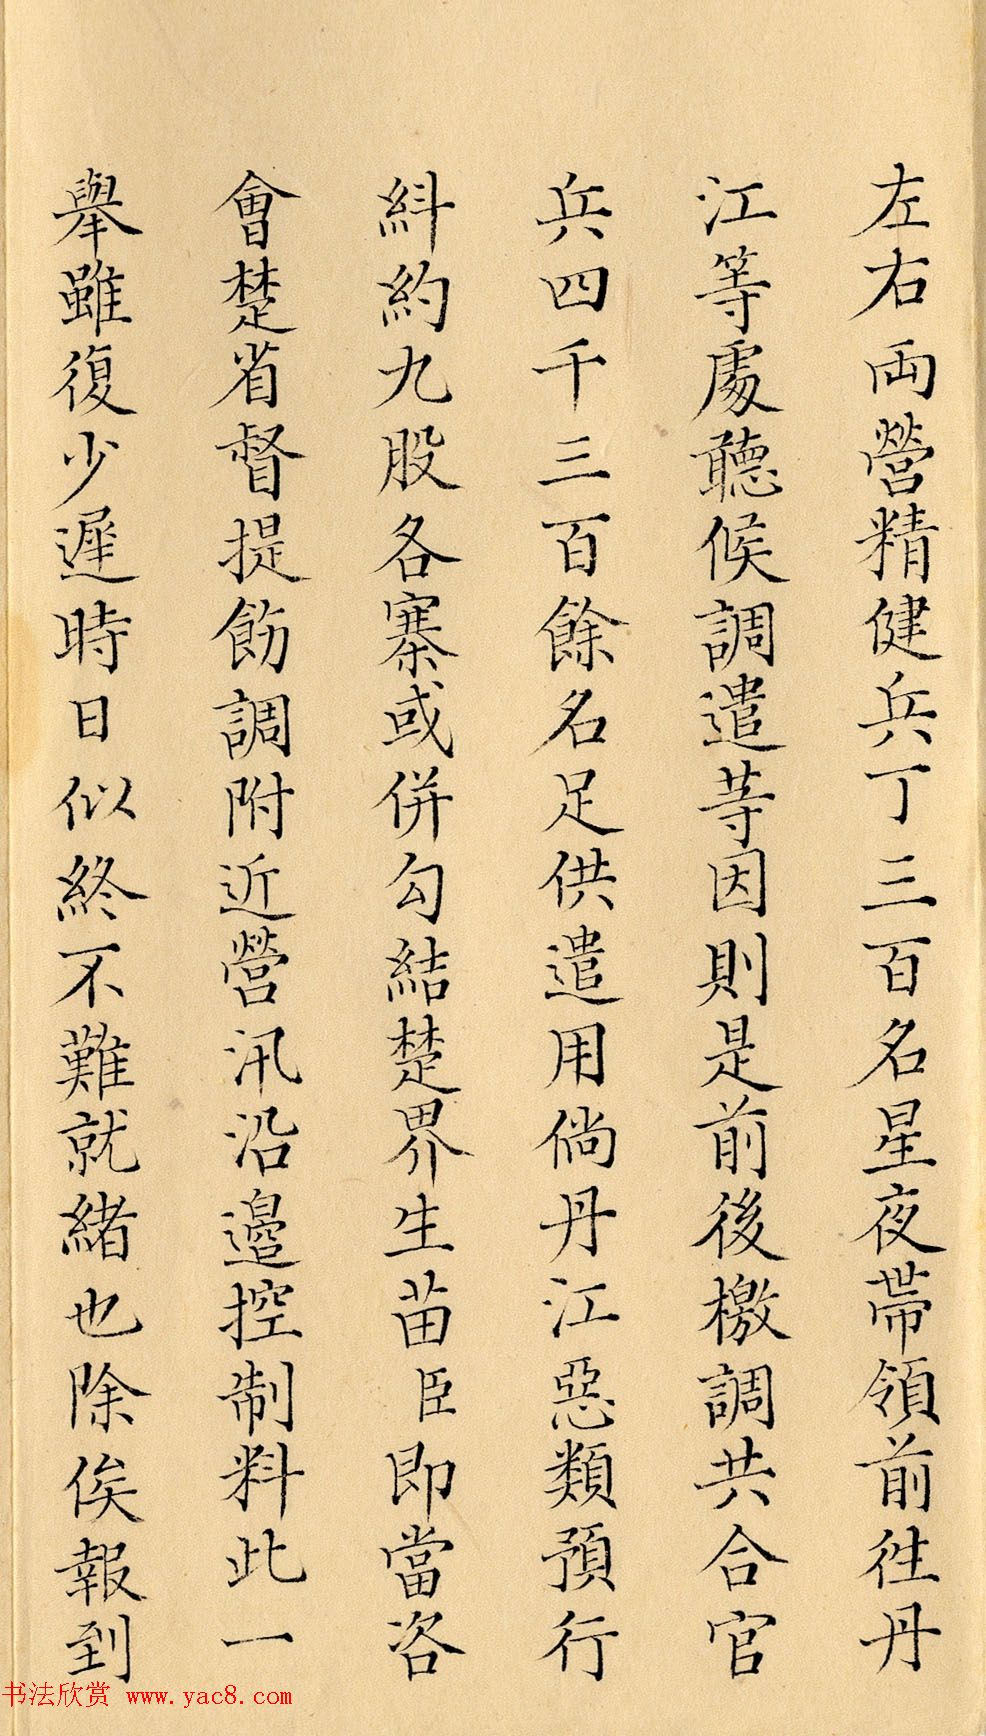 左右両營精健兵丁三百名星夜帶領前徃丹
江等處聽候調遣等因則是前後檄調共合官
兵四千三百餘名足供遣用倘丹江惡類預行
糾約九股各寨或併勾結楚界生苗臣即當咨
會楚省督提飭調附近營汛沿邊控制料此一
舉雖復少遲時日似終不難就緒也除俟報到
书法欣赏 www.yac8.com